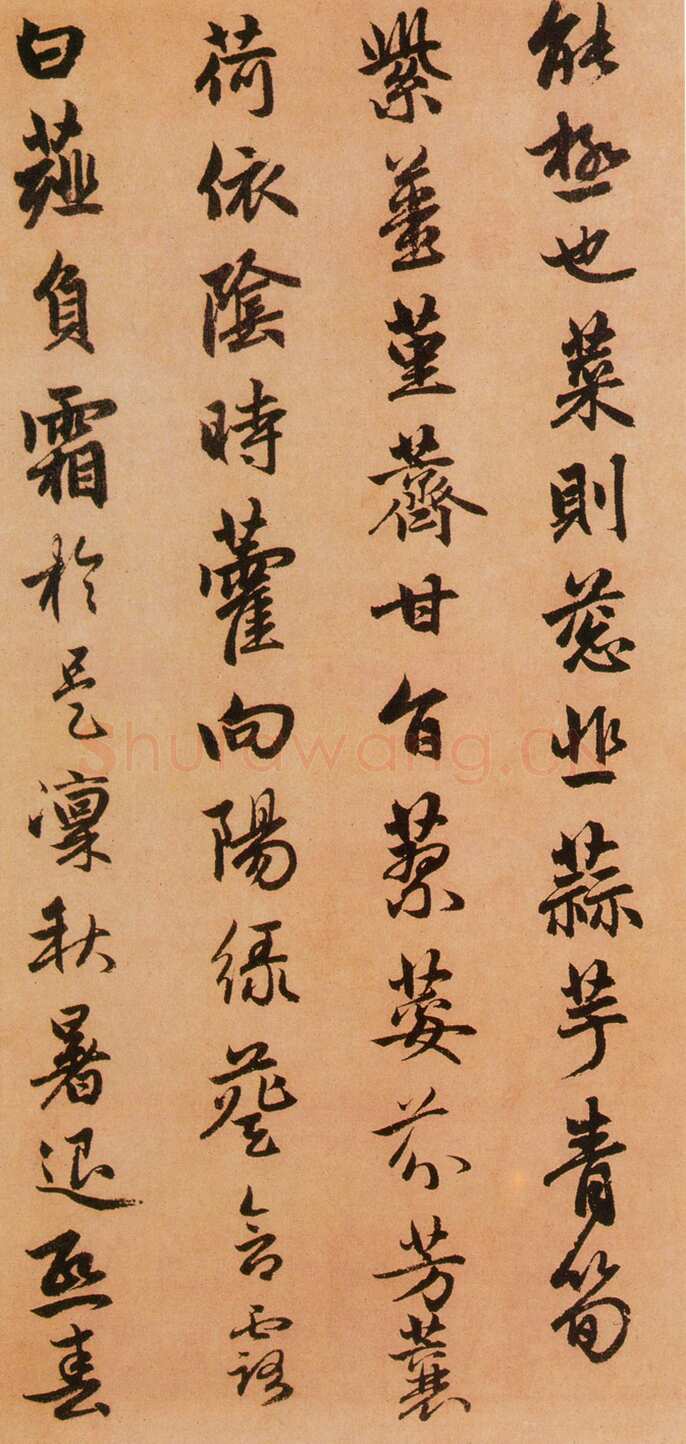 能極也菜則葱韭蒜芋青筍
紫薑堇薺甘旨蓼荽芬芳蘘
荷依陰時藿向陽綠葵含露
白薤負霜於是凜秋暑退熙春
Shufawang.CN